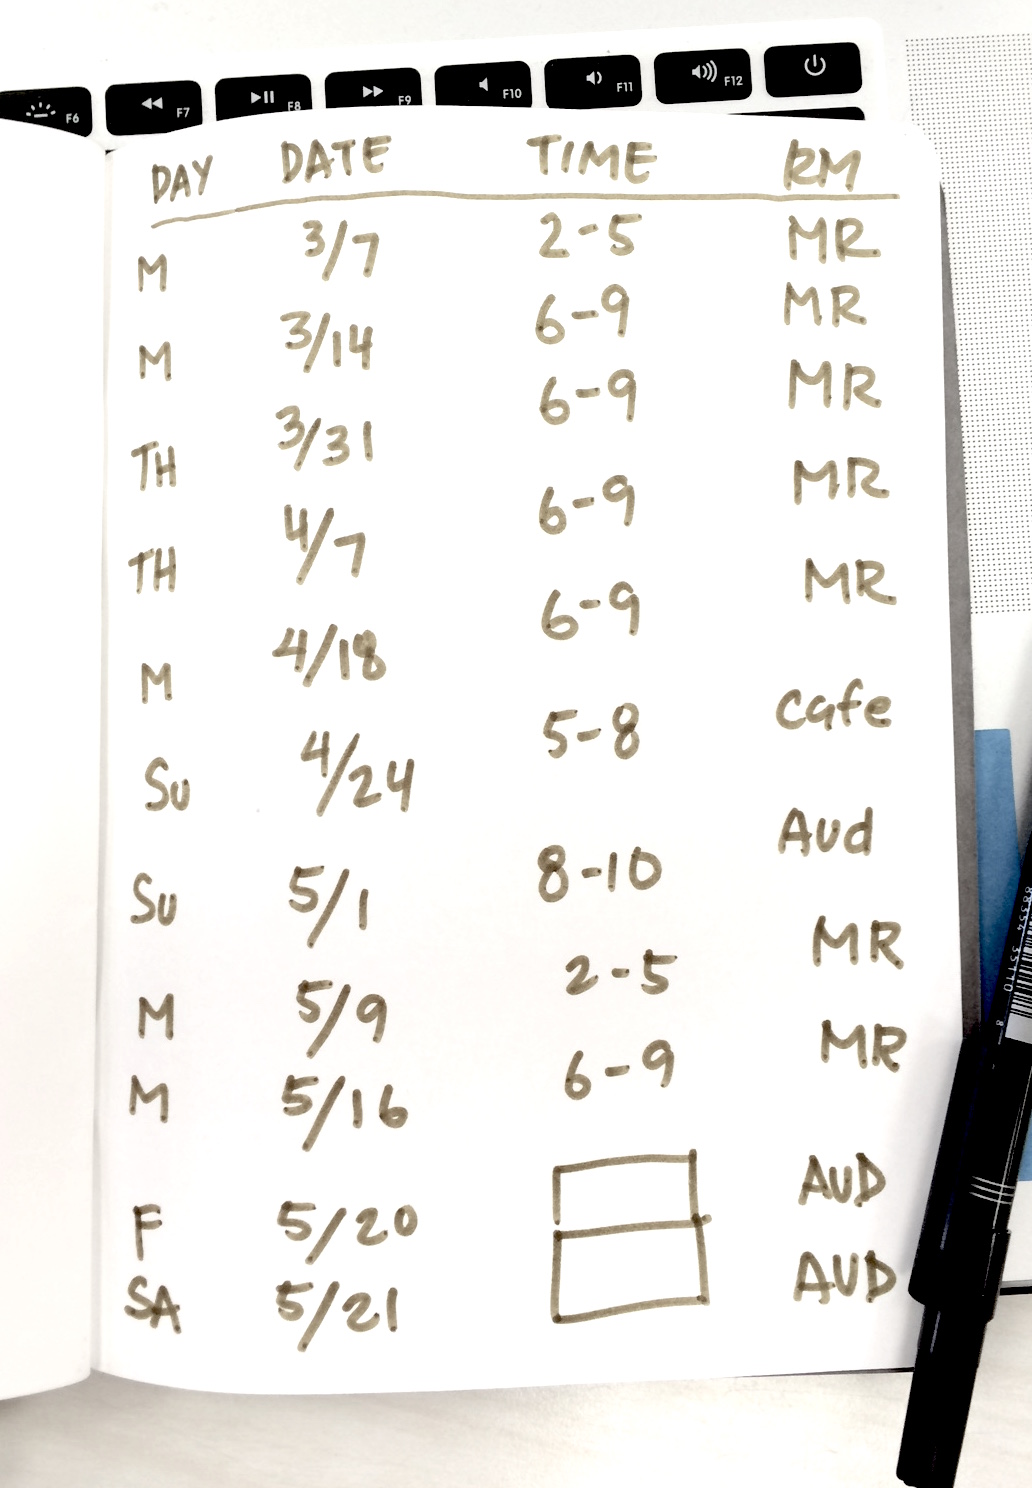 F6 F7 F8 F9 F10 F11 F12
DAY DATE TIME RM
M 3/7 2-5 MR
M 3/14 6-9 MR
TH 3/31 6-9 MR
TH 4/7 6-9 MR
M 4/18 6-9 MR
Su 4/24 5-8 Cafe
Su 5/1 8-10 Aud
M 5/9 2-5 MR
M 5/16 6-9 MR
F 5/20 AUD
SA 5/21 AUD
88354 35110 8